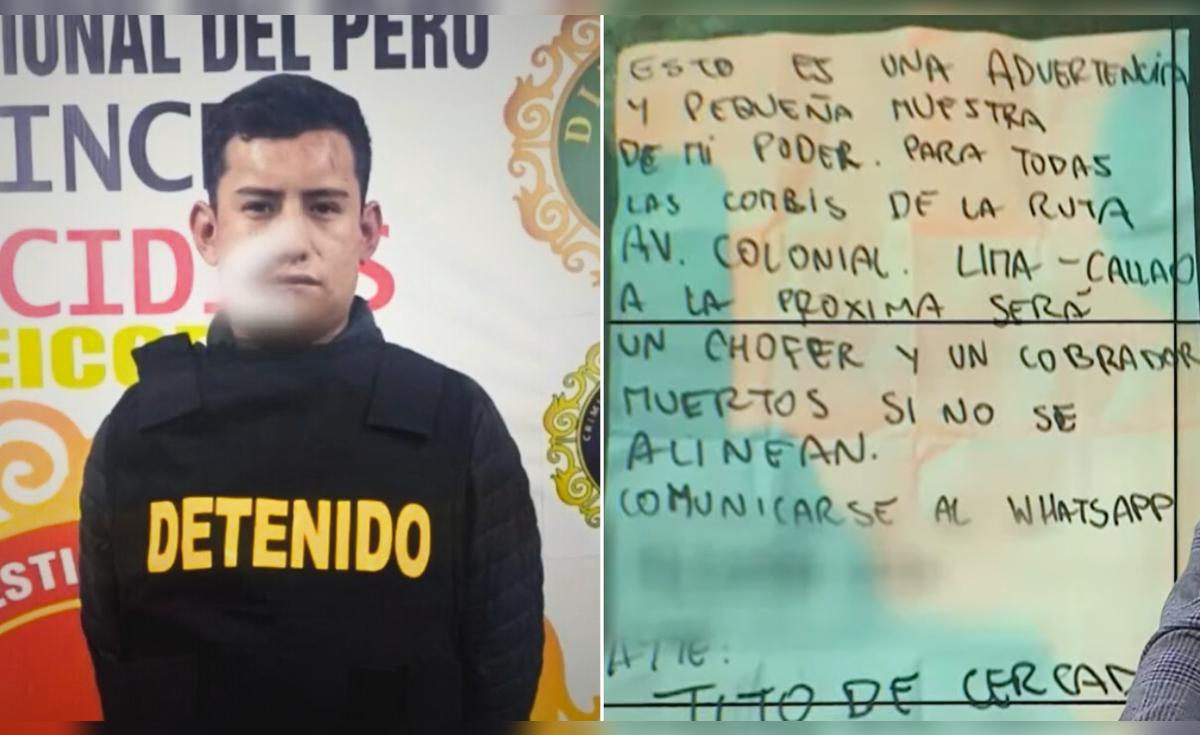 IONAL DEL PERÚ
INC
CID S
EICO
DETENIDO
ESTI
DI
CRIMI
ESTO ES UNA ADVERTENCIA
Y PEQUEÑA MUESTRA
DE MI PODER. PARA TODAS
LAS COMBIS DE LA RUTA
AV. COLONIAL. LIMA - CALLAO
A LA PROXIMA SERÁ
UN CHOFER Y UN COBRADOR
MUERTOS SI NO SE
ALINEAN.
COMUNICARSE AL WHATSAPP
ATTE:
TITO DE CERCAD